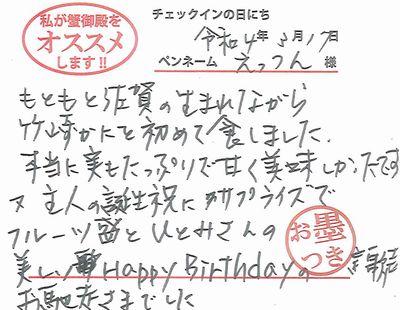 私が蟹御殿を
オススメ
します!!
チェックインの日にち
令和4年3月17日
ペンネーム えっつん 様
もともと佐賀の生まれながら
竹崎かにを初めて食しました。
本当に美もたっぷりで甘く美味しかったです
又 主人の誕生祝に サプライズで
フルーツ盛とひとみさんの
お墨
つき
美しい Happy Birthdayの
お馳走さまでした